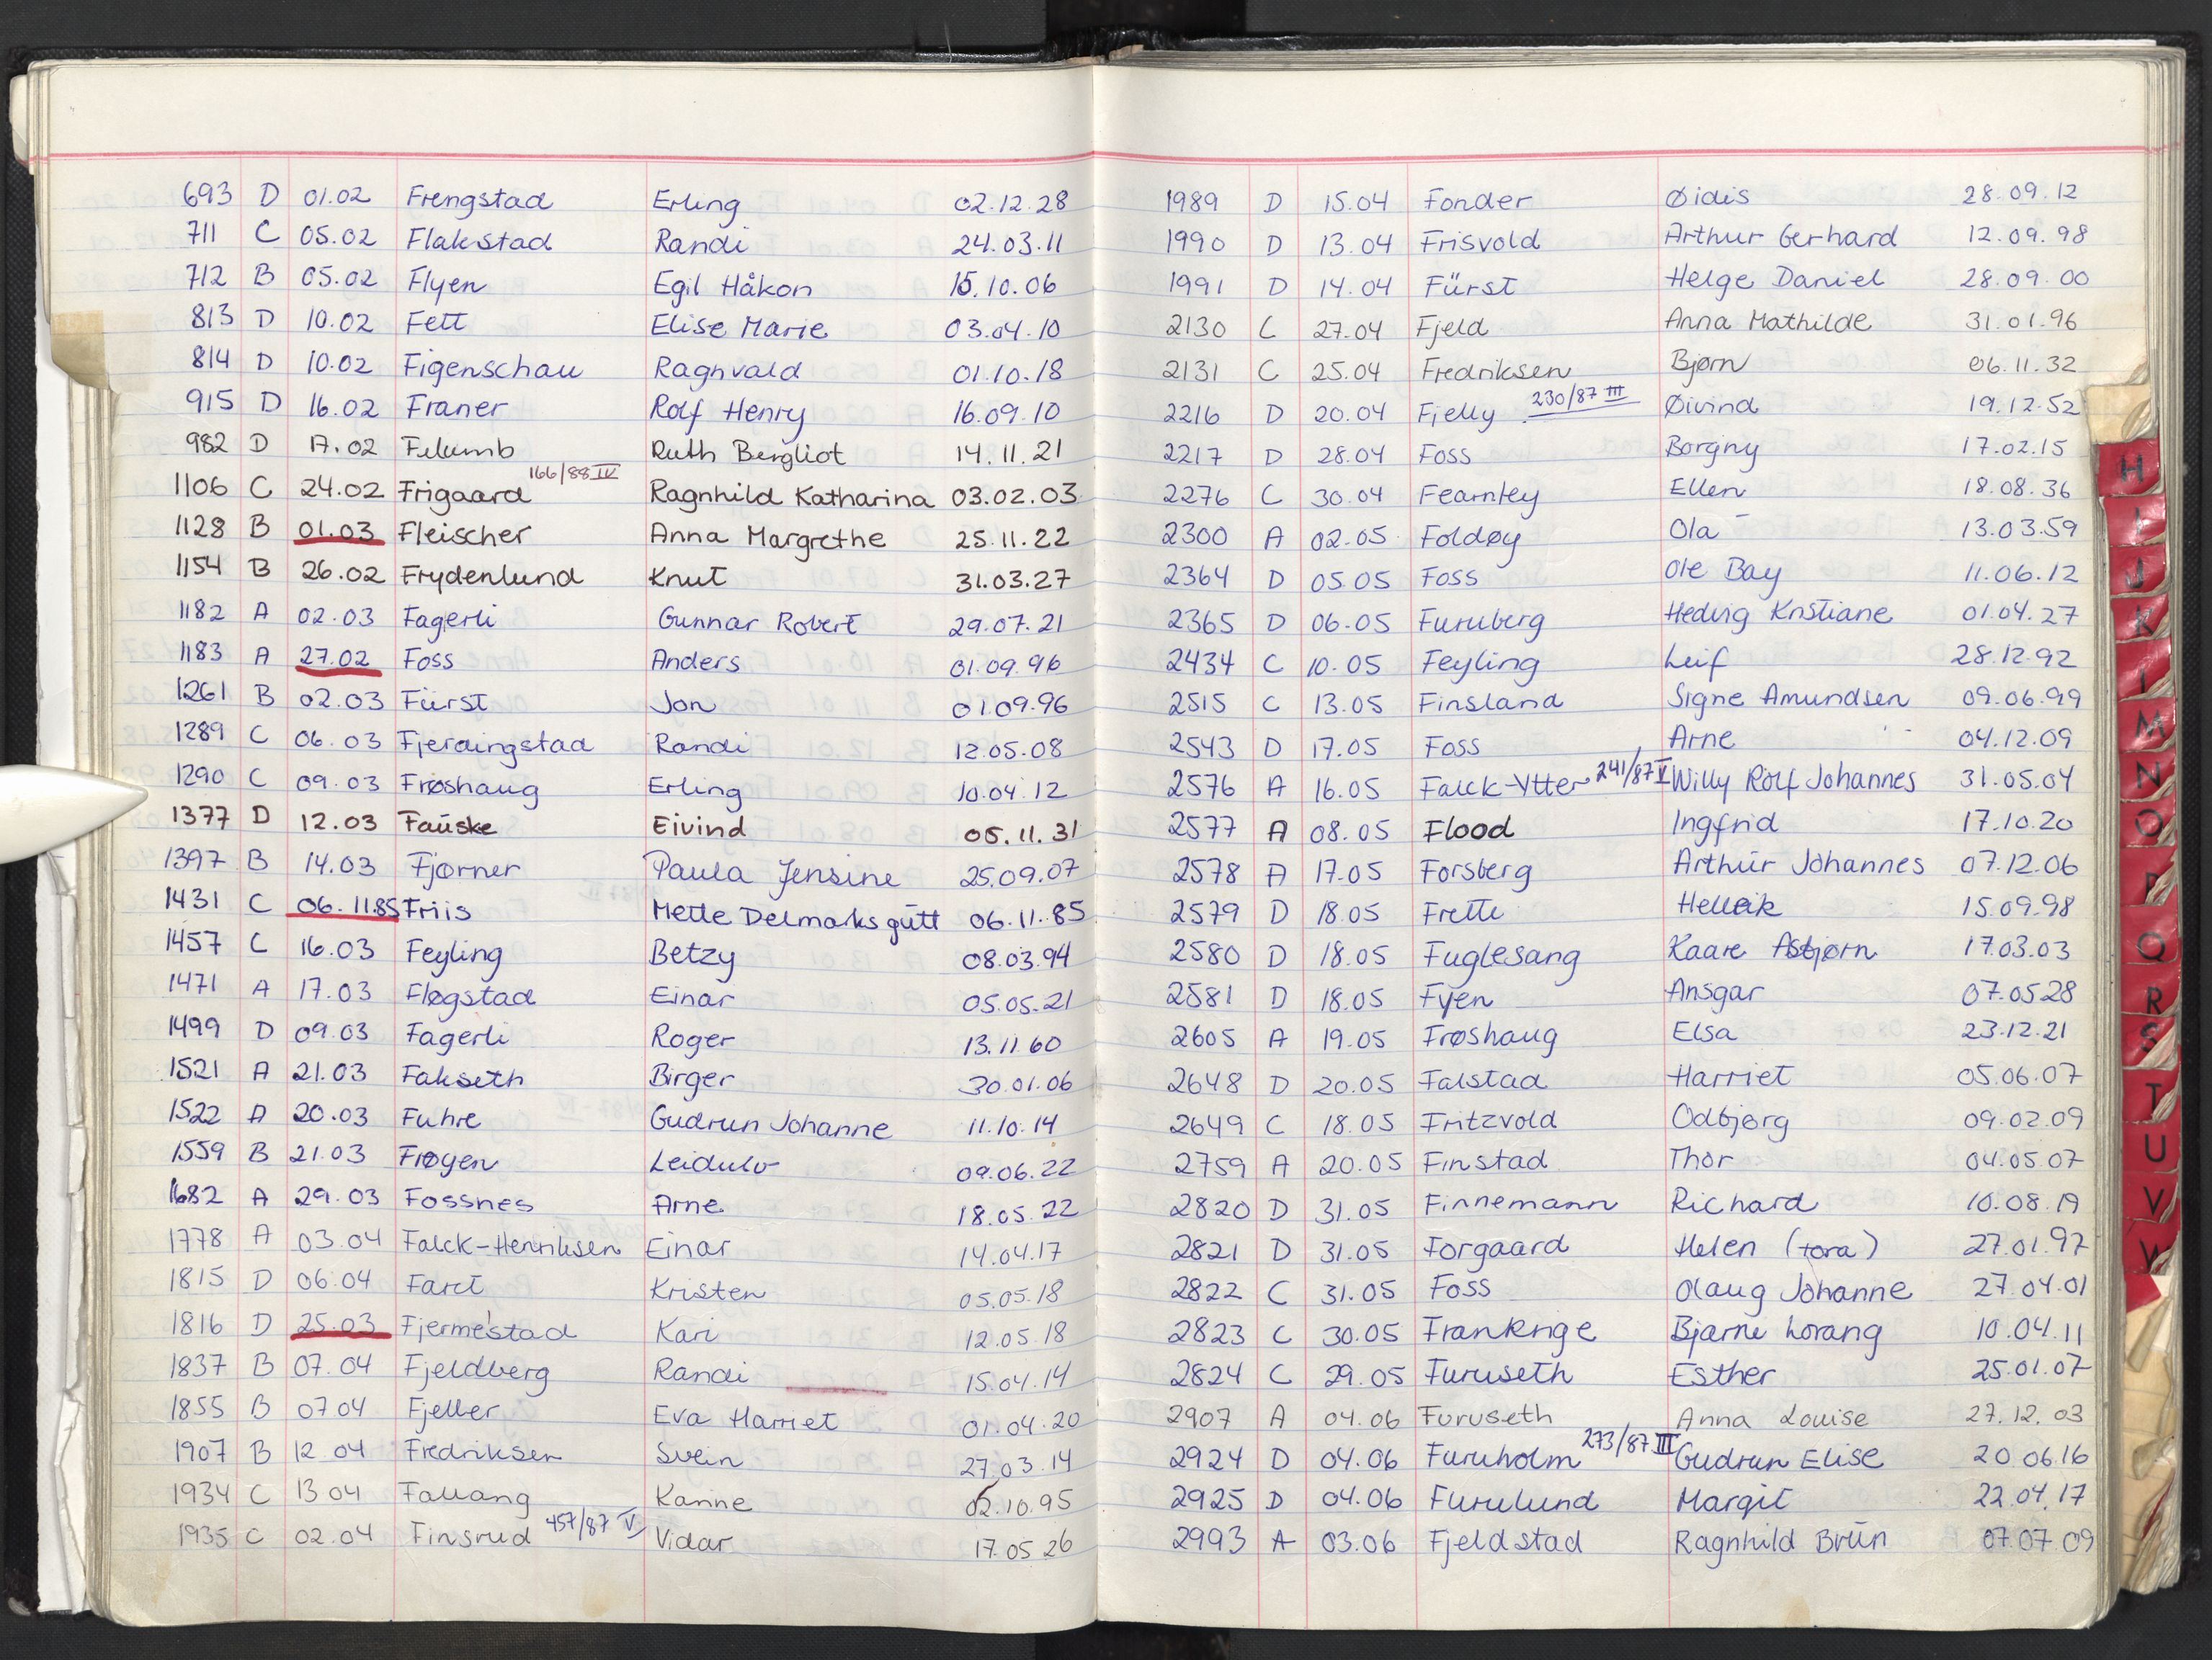 693 D 01.02 Frengstad Erling 02.12.28
711 C 05.02 Flakstad Randi 24.03.11
712 B 05.02 Flyen Egil Håkon 15.10.06
813 D 10.02 Fett Elise Marie 03.04.10
814 D 10.02 Figenschau Ragnvald 01.10.18
915 D 16.02 Franer Rolf Henry 16.09.10
982 D 17.02 Filumb Ruth Bergliot 14.11.21
1106 C 24.02 Frigaard 166/88 IV Ragnhild Katharina 03.02.03
1128 B 01.03 Fleischer Anna Margrethe 25.11.22
1154 B 26.02 Frydenlund Knut 31.03.27
1182 A 02.03 Fagerli Gunnar Robert 29.07.21
1183 A 27.02 Foss Anders 01.09.96
1261 B 02.03 Fürst Jon 01.09.96
1289 C 06.03 Fjerdingstad Randi 12.05.08
1290 C 09.03 Frøshaug Erling 10.04.12
1377 D 12.03 Fauske Eivind 05.11.31
1397 B 14.03 Fjørner Paula Jensine 25.09.07
1431 C 06.11.85 Friis Mette Delmarksgutt 06.11.85
1457 C 16.03 Feyling Betzy 08.03.94
1471 A 17.03 Fløgstad Einar 05.05.21
1499 D 09.03 Fagerli Roger 13.11.60
1521 A 21.03 Fakseth Birger 30.01.06
1522 A 20.03 Fuhre Gudrun Johanne 11.10.14
1559 B 21.03 Frøyen Leidulv 09.06.22
1682 A 29.03 Fossnes Arne 18.05.22
1778 A 03.04 Falck-Henriksen Einar 14.04.17
1815 D 06.04 Faret Kristen 05.05.18
1816 D 25.03 Fjermestad Kari 12.05.18
1837 B 07.04 Fjeldberg Randi 15.04.14
1855 B 07.04 Fjeller Eva Harriet 01.04.20
1907 B 12.04 Fredriksen Svein 27.03.14
1934 C 13.04 Fauang Kanne 02.10.95
1935 C 02.04 Finsrud 457/87 V Vidar 17.05.26
1989 D 15.04 Fonder Øidis 28.09.12
1990 D 13.04 Frisvold Arthur Gerhard 12.09.98
1991 D 14.04 Fürst Helge Daniel 28.09.00
2130 C 27.04 Fjeld Anna Mathilde 31.01.96
2131 C 25.04 Fredriksen Bjørn 06.11.32
2216 D 20.04 Fjelly 230/87 III Øivind 19.12.52
2217 D 28.04 Foss Borgny 17.02.15
2276 C 30.04 Fearnley Ellen 18.08.36
2300 A 02.05 Foldøy Ola 13.03.59
2364 D 05.05 Foss Ole Bay 11.06.12
2365 D 06.05 Furuberg Hedvig Kristiane 01.04.27
2434 C 10.05 Feyling Leif 28.12.92
2515 C 13.05 Finsland Signe Amundsen 09.06.99
2543 D 17.05 Foss Arne 04.12.09
2576 A 16.05 Falck-Ytter 241/87 V Willy Rolf Johannes 31.05.04
2577 A 08.05 Flood Ingfrid 17.10.20
2578 A 17.05 Forsberg Arthur Johannes 07.12.06
2579 D 18.05 Frette Helleik 15.09.98
2580 D 18.05 Fuglesang Kaare Asbjørn 17.03.03
2581 D 18.05 Fyen Ansgar 07.05.28
2605 A 19.05 Frøshaug Elsa 23.12.21
2648 D 20.05 Falstad Harriet 05.06.07
2649 C 18.05 Fritzvold Odbjørg 09.02.09
2759 A 20.05 Finstad Thor 04.05.07
2820 D 31.05 Finnemann Richard 10.08.19
2821 D 31.05 Forgaard Helen (tora) 27.01.97
2822 C 31.05 Foss Olaug Johanne 27.04.01
2823 C 30.05 Frankrige Bjarne Lorang 10.04.11
2824 C 29.05 Furuseth Esther 25.01.07
2907 A 04.06 Furuseth Anna Louise 27.12.03
2924 D 04.06 Furuholm 273/87 III Gudrun Elise 20.06.16
2925 D 04.06 Furulund Margit 22.04.17
2993 A 03.06 Fjeldstad Ragnhild Brun 07.07.09
H
I
J
K
L
M
N
O
P
Q
R
S
T
U
V
W